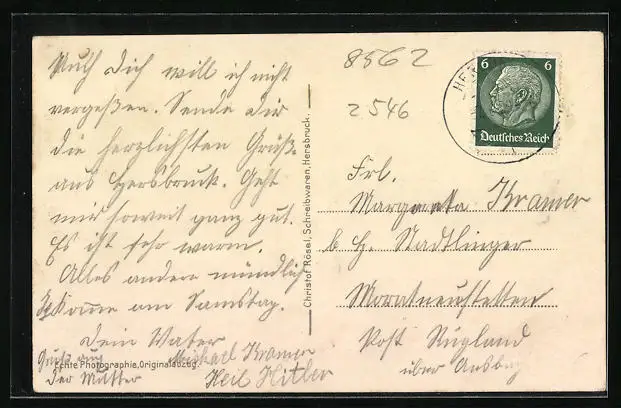 Auch dich will ich nicht
vergeßen. Sende dir
die herzlichsten Grüße
aus Hersbruck. Geht
mir soweit ganz gut.
Es ist sehr warm.
Alles andere mündlich
Komme am Samstag.
Dein Vater
Michael Kramer
Gruß auch
der Mutter
Heil Hitler
Echte Photographie, Originalabzug
Christof Rösel, Schreibwaren, Hersbruck.
8562
2546
6 6
Deutsches Reich
Frl.
Margareta Kramer
b H. Stadtlinger
Post Rügland
über Ansbach